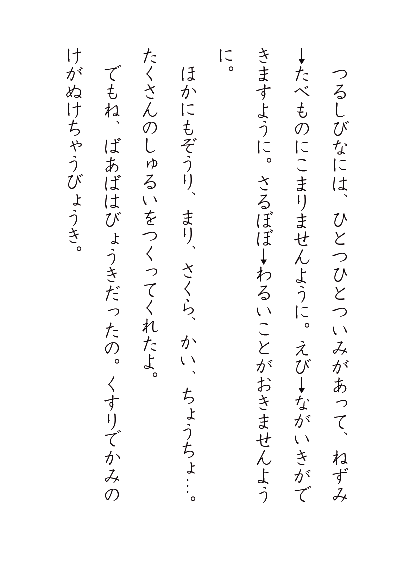 つるしびなには、ひとつひとついみがあって、ねずみ
→たべものにこまりませんように。えび→ながいきがで
きますように。さるぼぼ→わるいことがおきませんよう
に。
ほかにもぞうり、まり、さくら、かい、ちょうちょ…。
たくさんのしゅるいをつくってくれたよ。
でもね、ばあばはびょうきだったの。くすりでかみの
けがぬけちゃうびょうき。